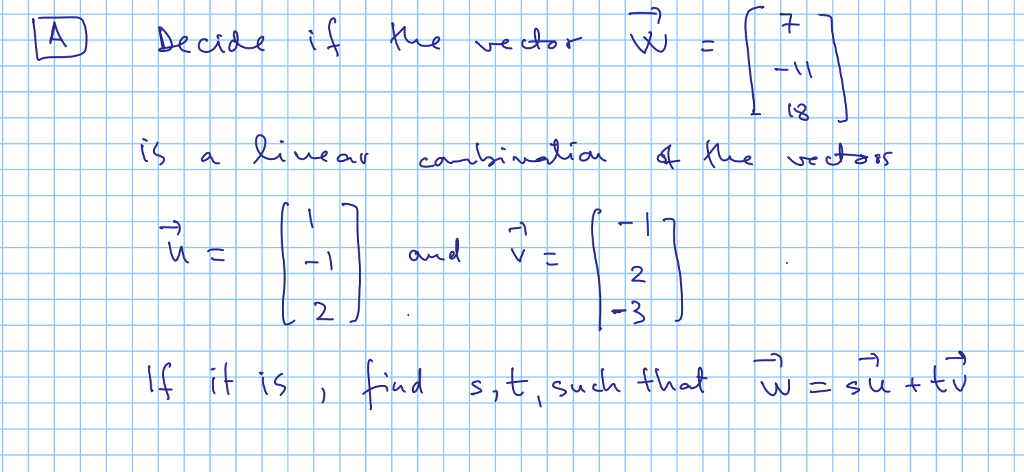 A Decide if the vector w⃗ = [7 -11 18]
is a linear combination of the vectors
u⃗ = [1 -1 2] and v⃗ = [-1 2 -3].
If it is, find s,t, such that w⃗ = su⃗ + tv⃗